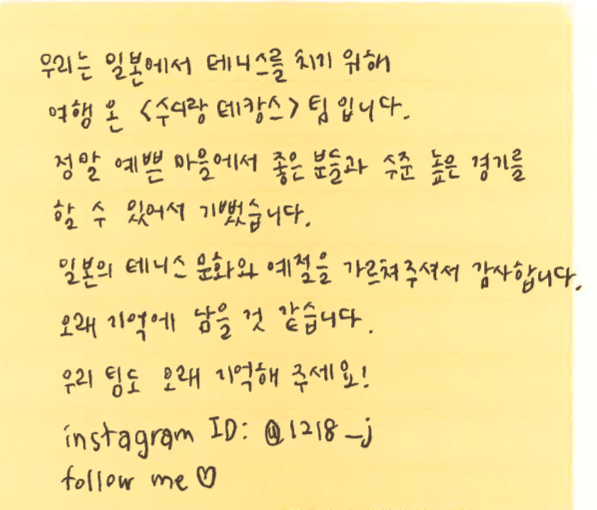 우리는 일본에서 테니스를 치기 위해
여행 온 <수디랑 테캉스> 팀입니다.
정말 예쁜 마을에서 좋은 분들과 수준 높은 경기를
할 수 있어서 기뻤습니다.
일본의 테니스 문화와 예절을 가르쳐주셔서 감사합니다.
오래 기억에 남을 것 같습니다.
우리 팀도 오래 기억해 주세요!
instagram ID: @1218_j
follow me ♡